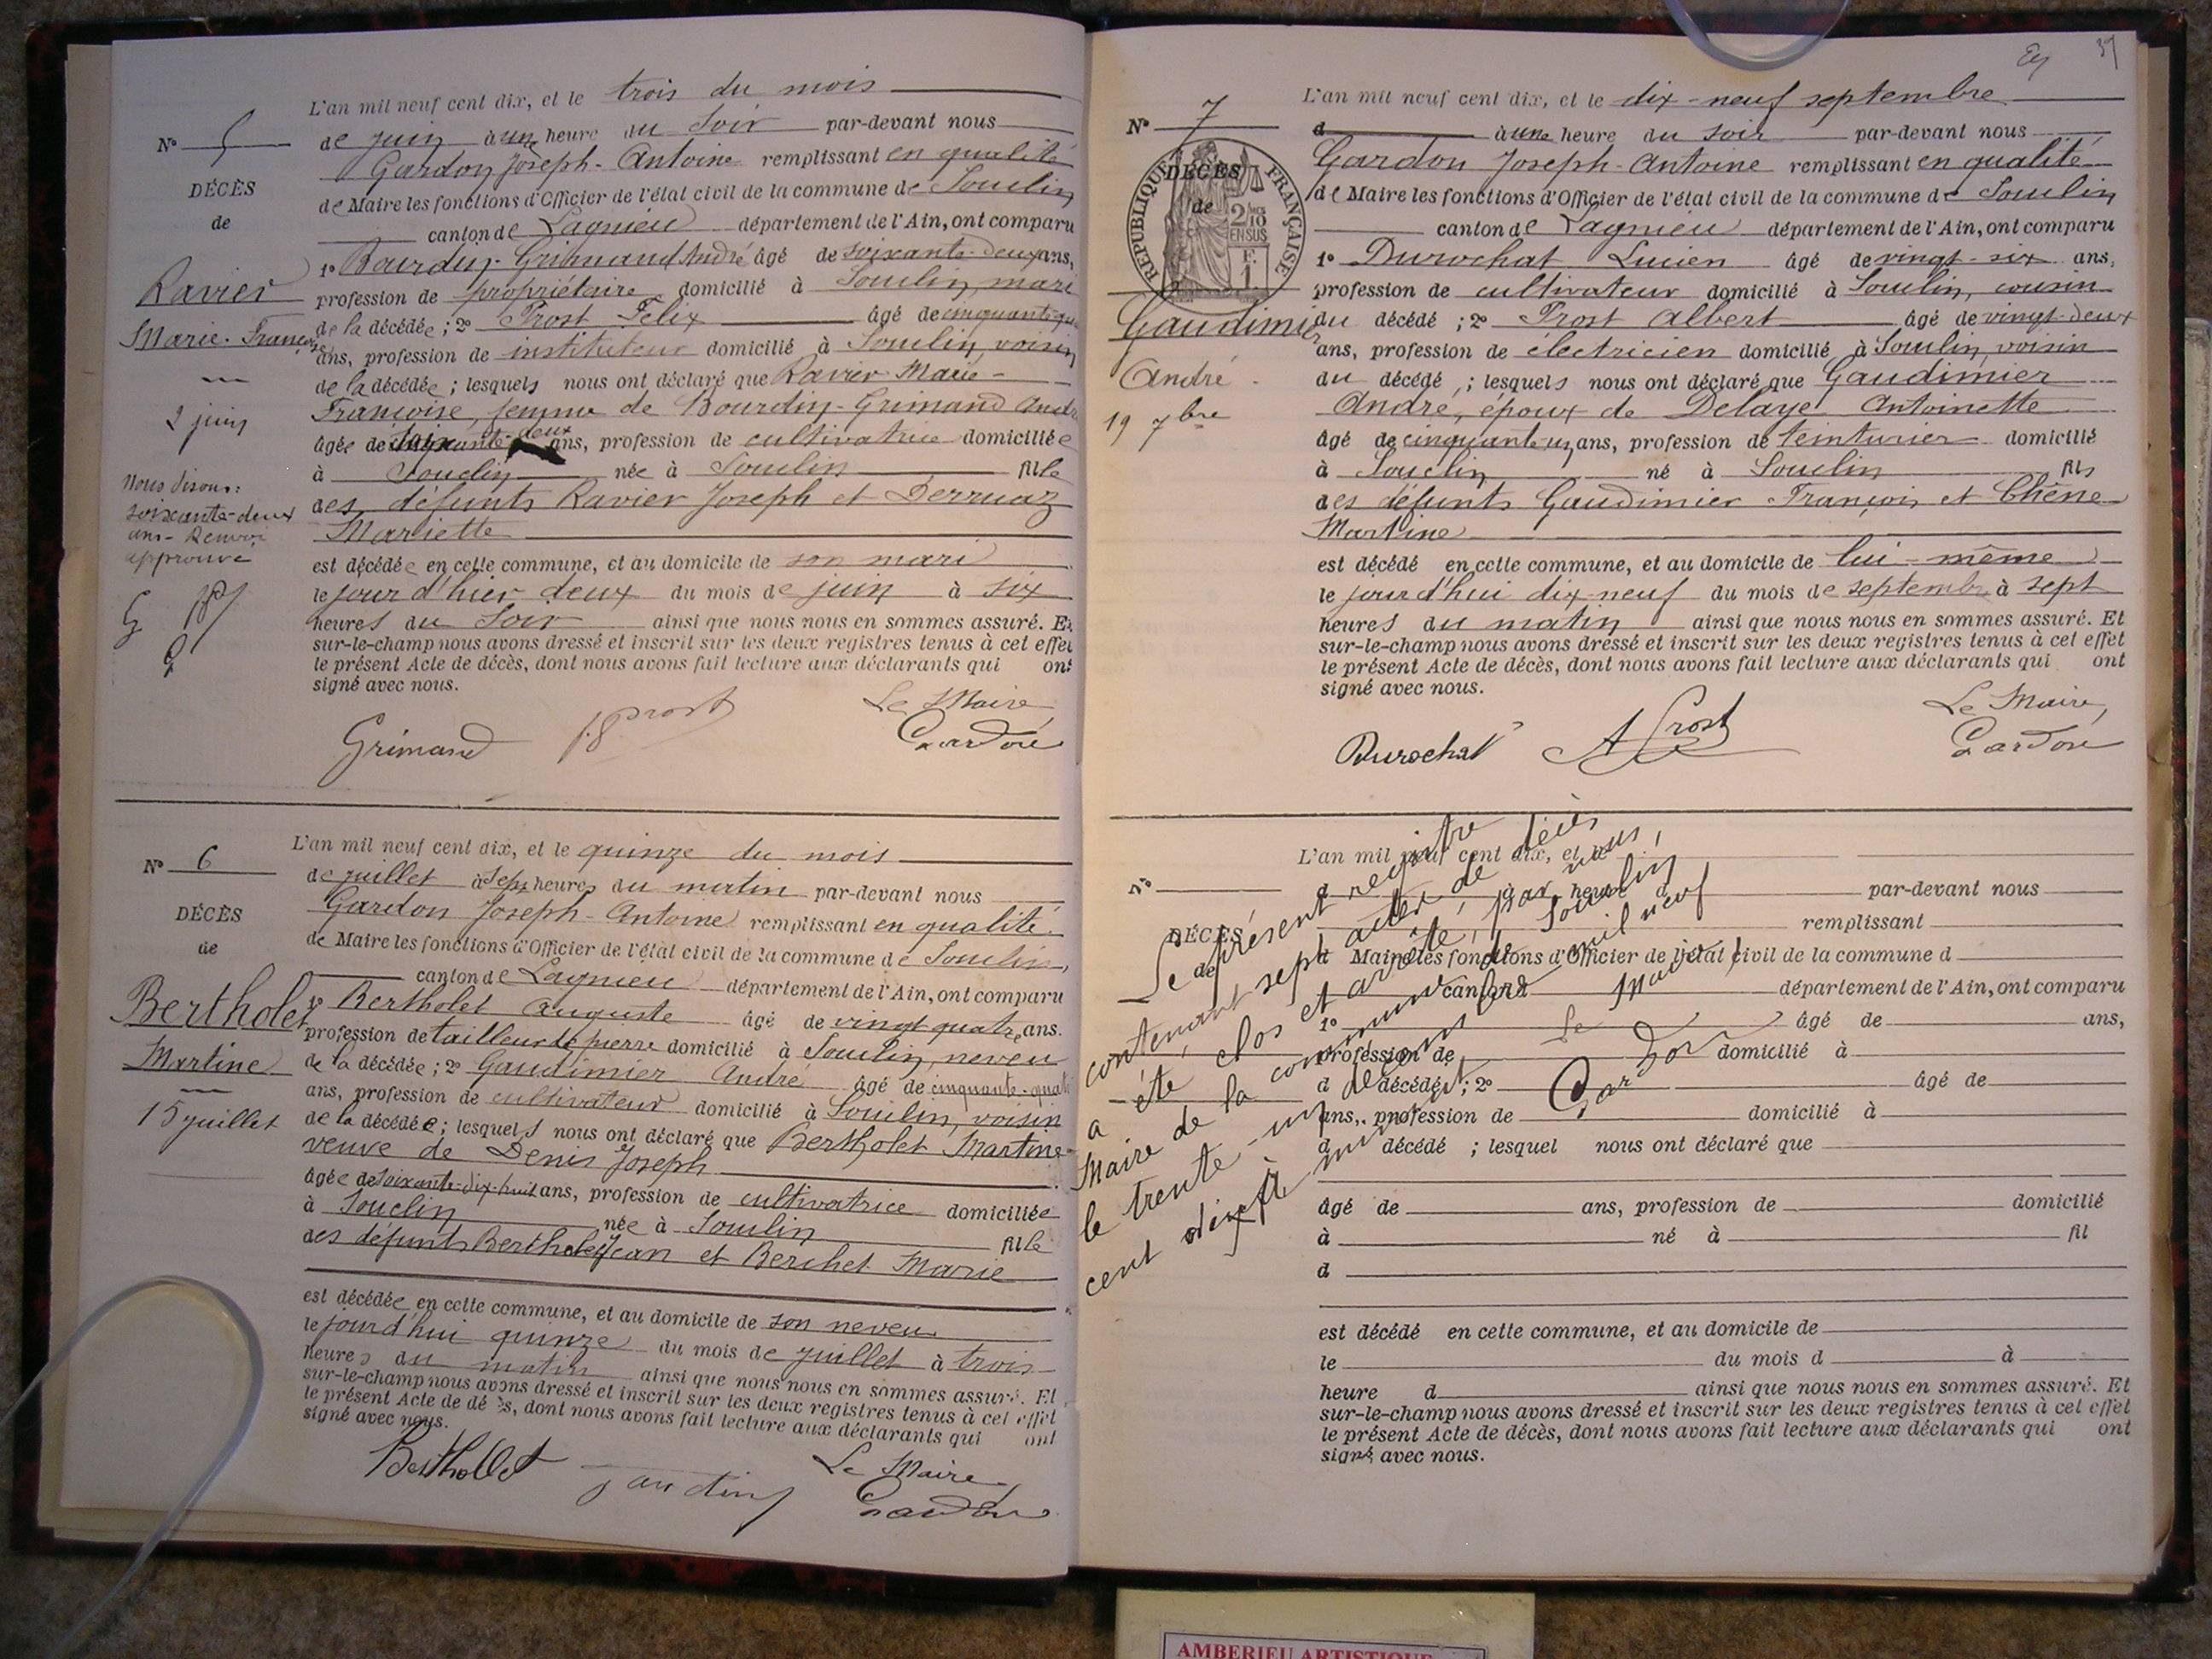 L'an mil neuf cent dix, et le trois du mois
N° 5
de juin à une heure du soir par-devant nous
Gardon Joseph-Antoine remplissant en qualité
DÉCÈS
de Maire les fonctions d'Officier de l'état civil de la commune de Souclin
de
canton de Lagnieu département de l'Ain, ont comparu
1° Bourdin-Grimaud André âgé de soixante-deux ans,
Ravier
profession de propriétaire domicilié à Souclin, mari
Marie-Françoise
de la décédée ; 2° Prost Félix âgé de cinquante
ans, profession de instituteur domicilié à Souclin, voisin
de la décédée ; lesquels nous ont déclaré que Ravier Marie-
2 juin
Françoise, femme de Bourdin-Grimand André
âgée de soixante-deux ans, profession de cultivatrice domiciliée
à Souclin née à Souclin fille
Nous disons :
soixante-deux
ans - Renvoi
approuvé
des défunts Ravier Joseph et Derruaz
Mariette
est décédée en cette commune, et au domicile de son mari
le jour d'hier deux du mois de juin à six
heures du soir ainsi que nous nous en sommes assuré. Et
sur-le-champ nous avons dressé et inscrit sur les deux registres tenus à cet effet
le présent Acte de décès, dont nous avons fait lecture aux déclarants qui ont
signé avec nous.
Le Maire,
Grimand Prost Gardon
L'an mil neuf cent dix, et le quinze du mois
N° 6
de juillet à sept heures du matin par-devant nous
Gardon Joseph-Antoine remplissant en qualité
DÉCÈS
de Maire les fonctions d'Officier de l'état civil de la commune de Souclin,
de
canton de Lagnieu département de l'Ain, ont comparu
Bertholet
1° Bertholet Auguste âgé de vingt quatre ans.
profession de tailleur de pierre domicilié à Souclin, neveu
Martine
de la décédée ; 2° Gaudimier André âgé de cinquante-quatre
ans, profession de cultivateur domicilié à Souclin, voisin
15 juillet
de la décédée ; lesquels nous ont déclaré que Bertholet Martine
veuve de Denis Joseph
âgée de soixante-dix-huit ans, profession de cultivatrice domiciliée
à Souclin née à Souclin fille
des défunts Bertholet Jean et Berchet Marie
est décédée en cette commune, et au domicile de son neveu
le jourd'hui quinze du mois de juillet à trois
heures du matin ainsi que nous nous en sommes assuré. Et
sur-le-champ nous avons dressé et inscrit sur les deux registres tenus à cet effet
le présent Acte de décès, dont nous avons fait lecture aux déclarants qui ont
signé avec nous.
Le Maire,
Berthollet Gardon
37
L'an mil neuf cent dix, et le dix-neuf septembre
N° 7
d à une heure du soir par-devant nous
Gardon Joseph-Antoine remplissant en qualité
DÉCÈS
RÉPUBLIQUE FRANÇAISE
de Maire les fonctions d'Officier de l'état civil de la commune de Souclin
de
2/10 EN SUS
1 F.
canton de Lagnieu département de l'Ain, ont comparu
1° Durochat Lucien âgé de vingt-six ans,
profession de cultivateur domicilié à Souclin, cousin
Gaudimier
du décédé ; 2° Prost Albert âgé de vingt-deux
ans, profession de électricien domicilié à Souclin, voisin
André
du décédé ; lesquels nous ont déclaré que Gaudimier
19 7bre
André, époux de Delaye Antoinette
âgé de cinquante un ans, profession de teinturier domicilié
à Souclin né à Souclin fils
des défunts Gaudimier François et Chêne
Martine
est décédé en cette commune, et au domicile de lui-même
le jourd'hui dix-neuf du mois de septembre à sept
heures du matin ainsi que nous nous en sommes assuré. Et
sur-le-champ nous avons dressé et inscrit sur les deux registres tenus à cet effet
le présent Acte de décès, dont nous avons fait lecture aux déclarants qui ont
signé avec nous.
Le Maire,
Durochat A Prost Gardon
Le présent registre
contenant sept actes de décès
a été clos et arrêté, par nous,
Maire de la commune de Souclin
le trente-un décembre mil neuf
cent dix à minuit
Le Maire,
Gardon
L'an mil neuf cent dix, et le
N°
d à heure d par-devant nous
remplissant
DÉCÈS
d Maire les fonctions d'Officier de l'état civil de la commune d
de
canton d département de l'Ain, ont comparu
1° âgé de ans,
profession de domicilié à
d décédé ; 2° âgé de
ans, profession de domicilié à
d décédé ; lesquel nous ont déclaré que
âgé de ans, profession de domicilié
à né à fil
d
est décédé en cette commune, et au domicile de
le du mois d à
heure d ainsi que nous nous en sommes assuré. Et
sur-le-champ nous avons dressé et inscrit sur les deux registres tenus à cet effet
le présent Acte de décès, dont nous avons fait lecture aux déclarants qui ont
signé avec nous.
AMBERIEU ARTISTIQUE